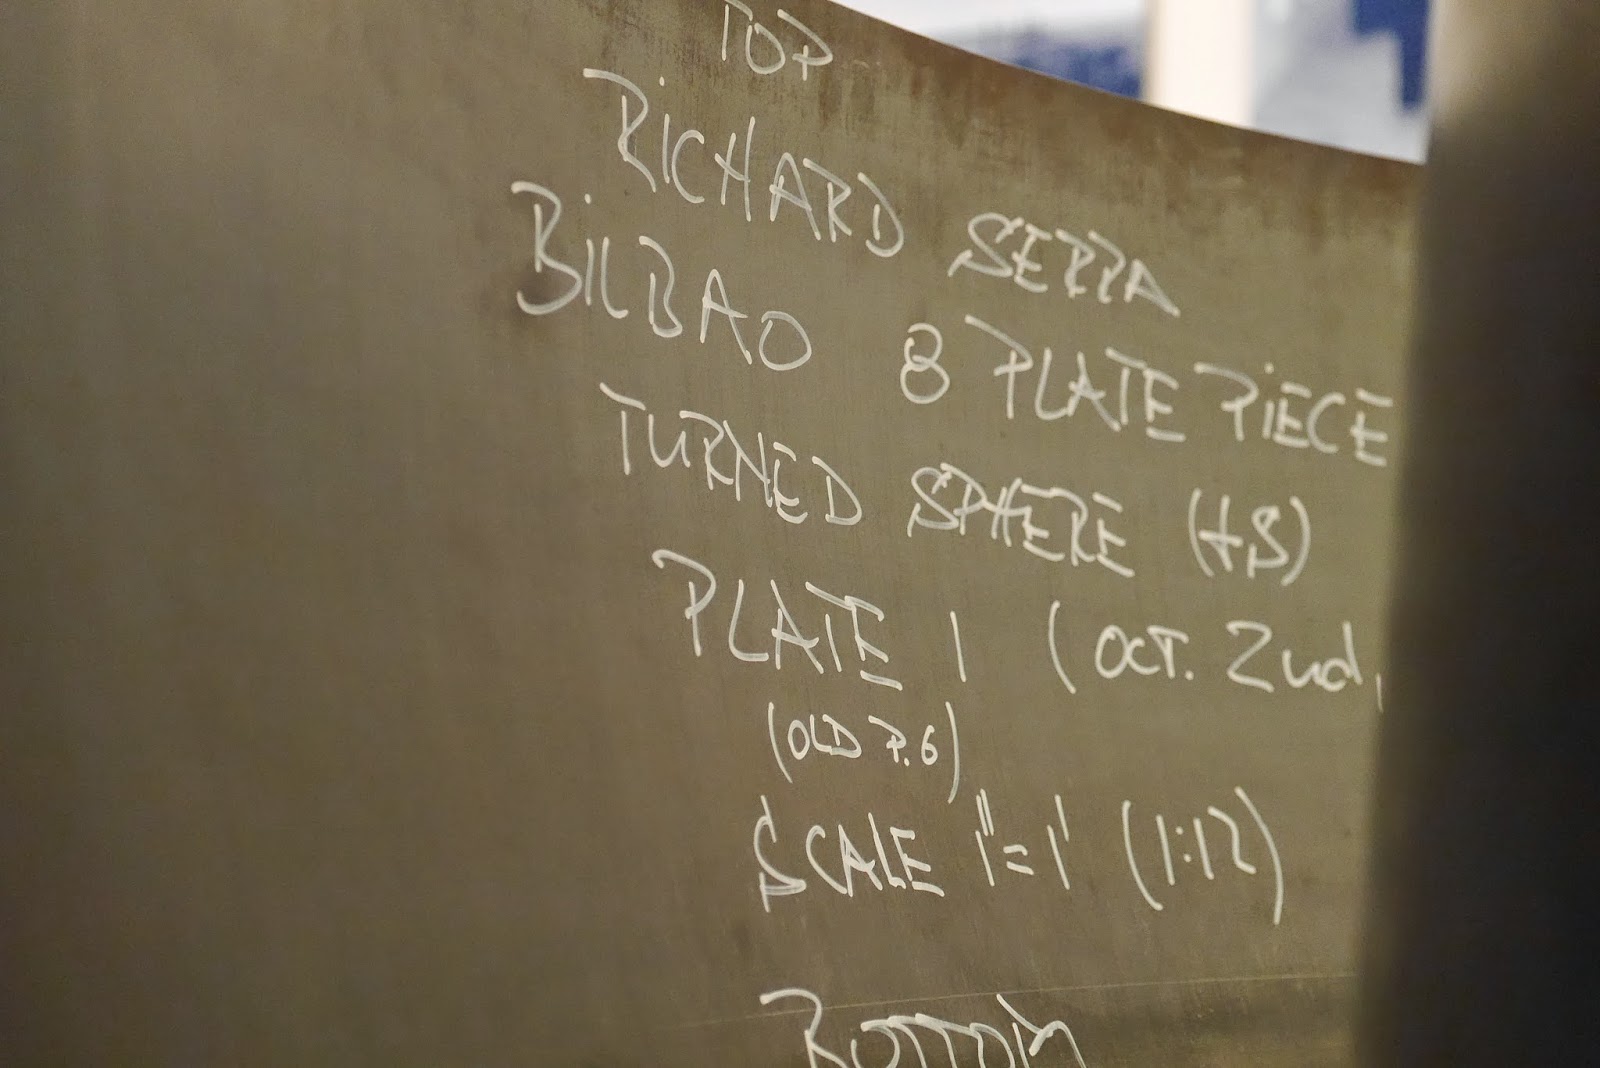 TOP
RICHARD SERRA
BILBAO 8 PLATE PIECE
TURNED SPHERE (t.S)
PLATE 1 (OCT. 2nd,
(OLD P. 6)
SCALE 1"=1' (1:12)
BOTTOM